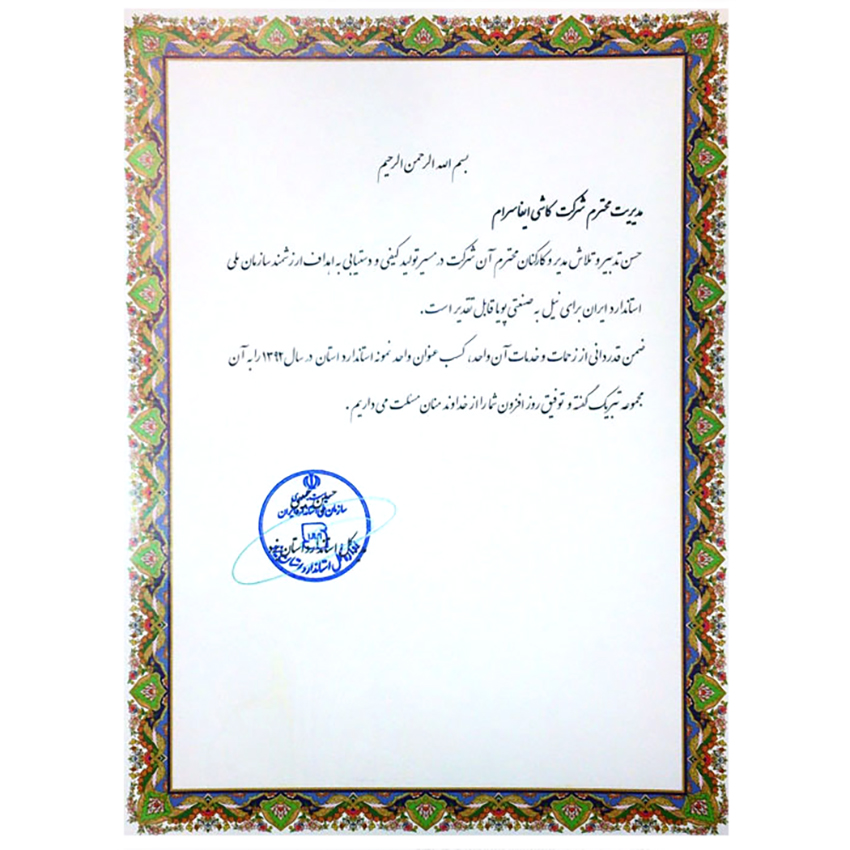 بسم الله الرحمن الرحیم
مدیریت محترم شرکت کاشی ایفاسرام
حسن تدبیر و تلاش مدیر و کارکنان محترم آن شرکت در مسیر تولید کیفی و دستیابی به اهداف ارزشمند سازمان ملی
استاندارد ایران برای نیل به صنعتی پویا قابل تقدیر است.
ضمن قدردانی از زحمات و خدمات آن واحد، کسب عنوان واحد نمونه استاندارد استان در سال ۱۳۹۲ را به آن
مجموعه تبریک گفته و توفیق روز افزون شما را از خداوند منان مسئلت می داریم.
سازمان ملی استاندارد ایران
استاندارد استان